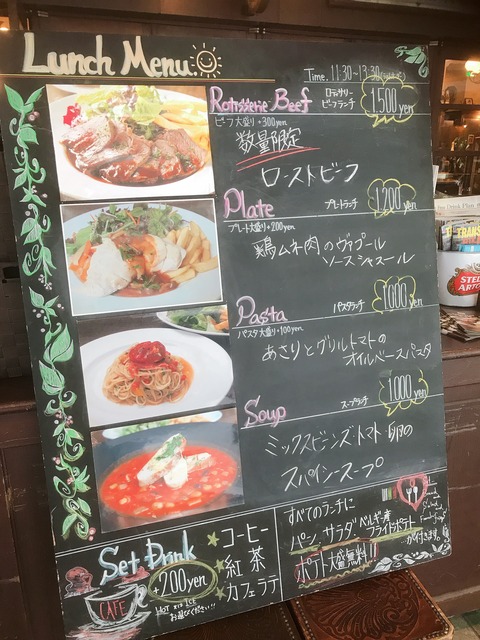 Lunch Menu.
Time. 11:30~13:30
Rotisserie Beef
ロティサリー
ビーフランチ
1,500yen
ビーフ大盛り+300yen
数量限定
ローストビーフ
Plate
プレートランチ
1,200yen
プレート大盛り+200yen
鶏ムネ肉のヴァプール
ソースシャスール
Pasta
パスタランチ
1,000yen
パスタ大盛り+100yen
あさりとグリルトマトの
オイルベースパスタ
Soup
スープランチ
1,000yen
ミックスビーンズ・トマト・卵の
スパイシースープ
Set Drink
+200yen
HOT ICE
お選びください!!
CAFE
コーヒー
紅茶
カフェラテ
すべてのランチに
パン、サラダ、ベルギー産
フライドポテト
が付きます。
ポテト大盛無料!!
STELLA
ARTOIS